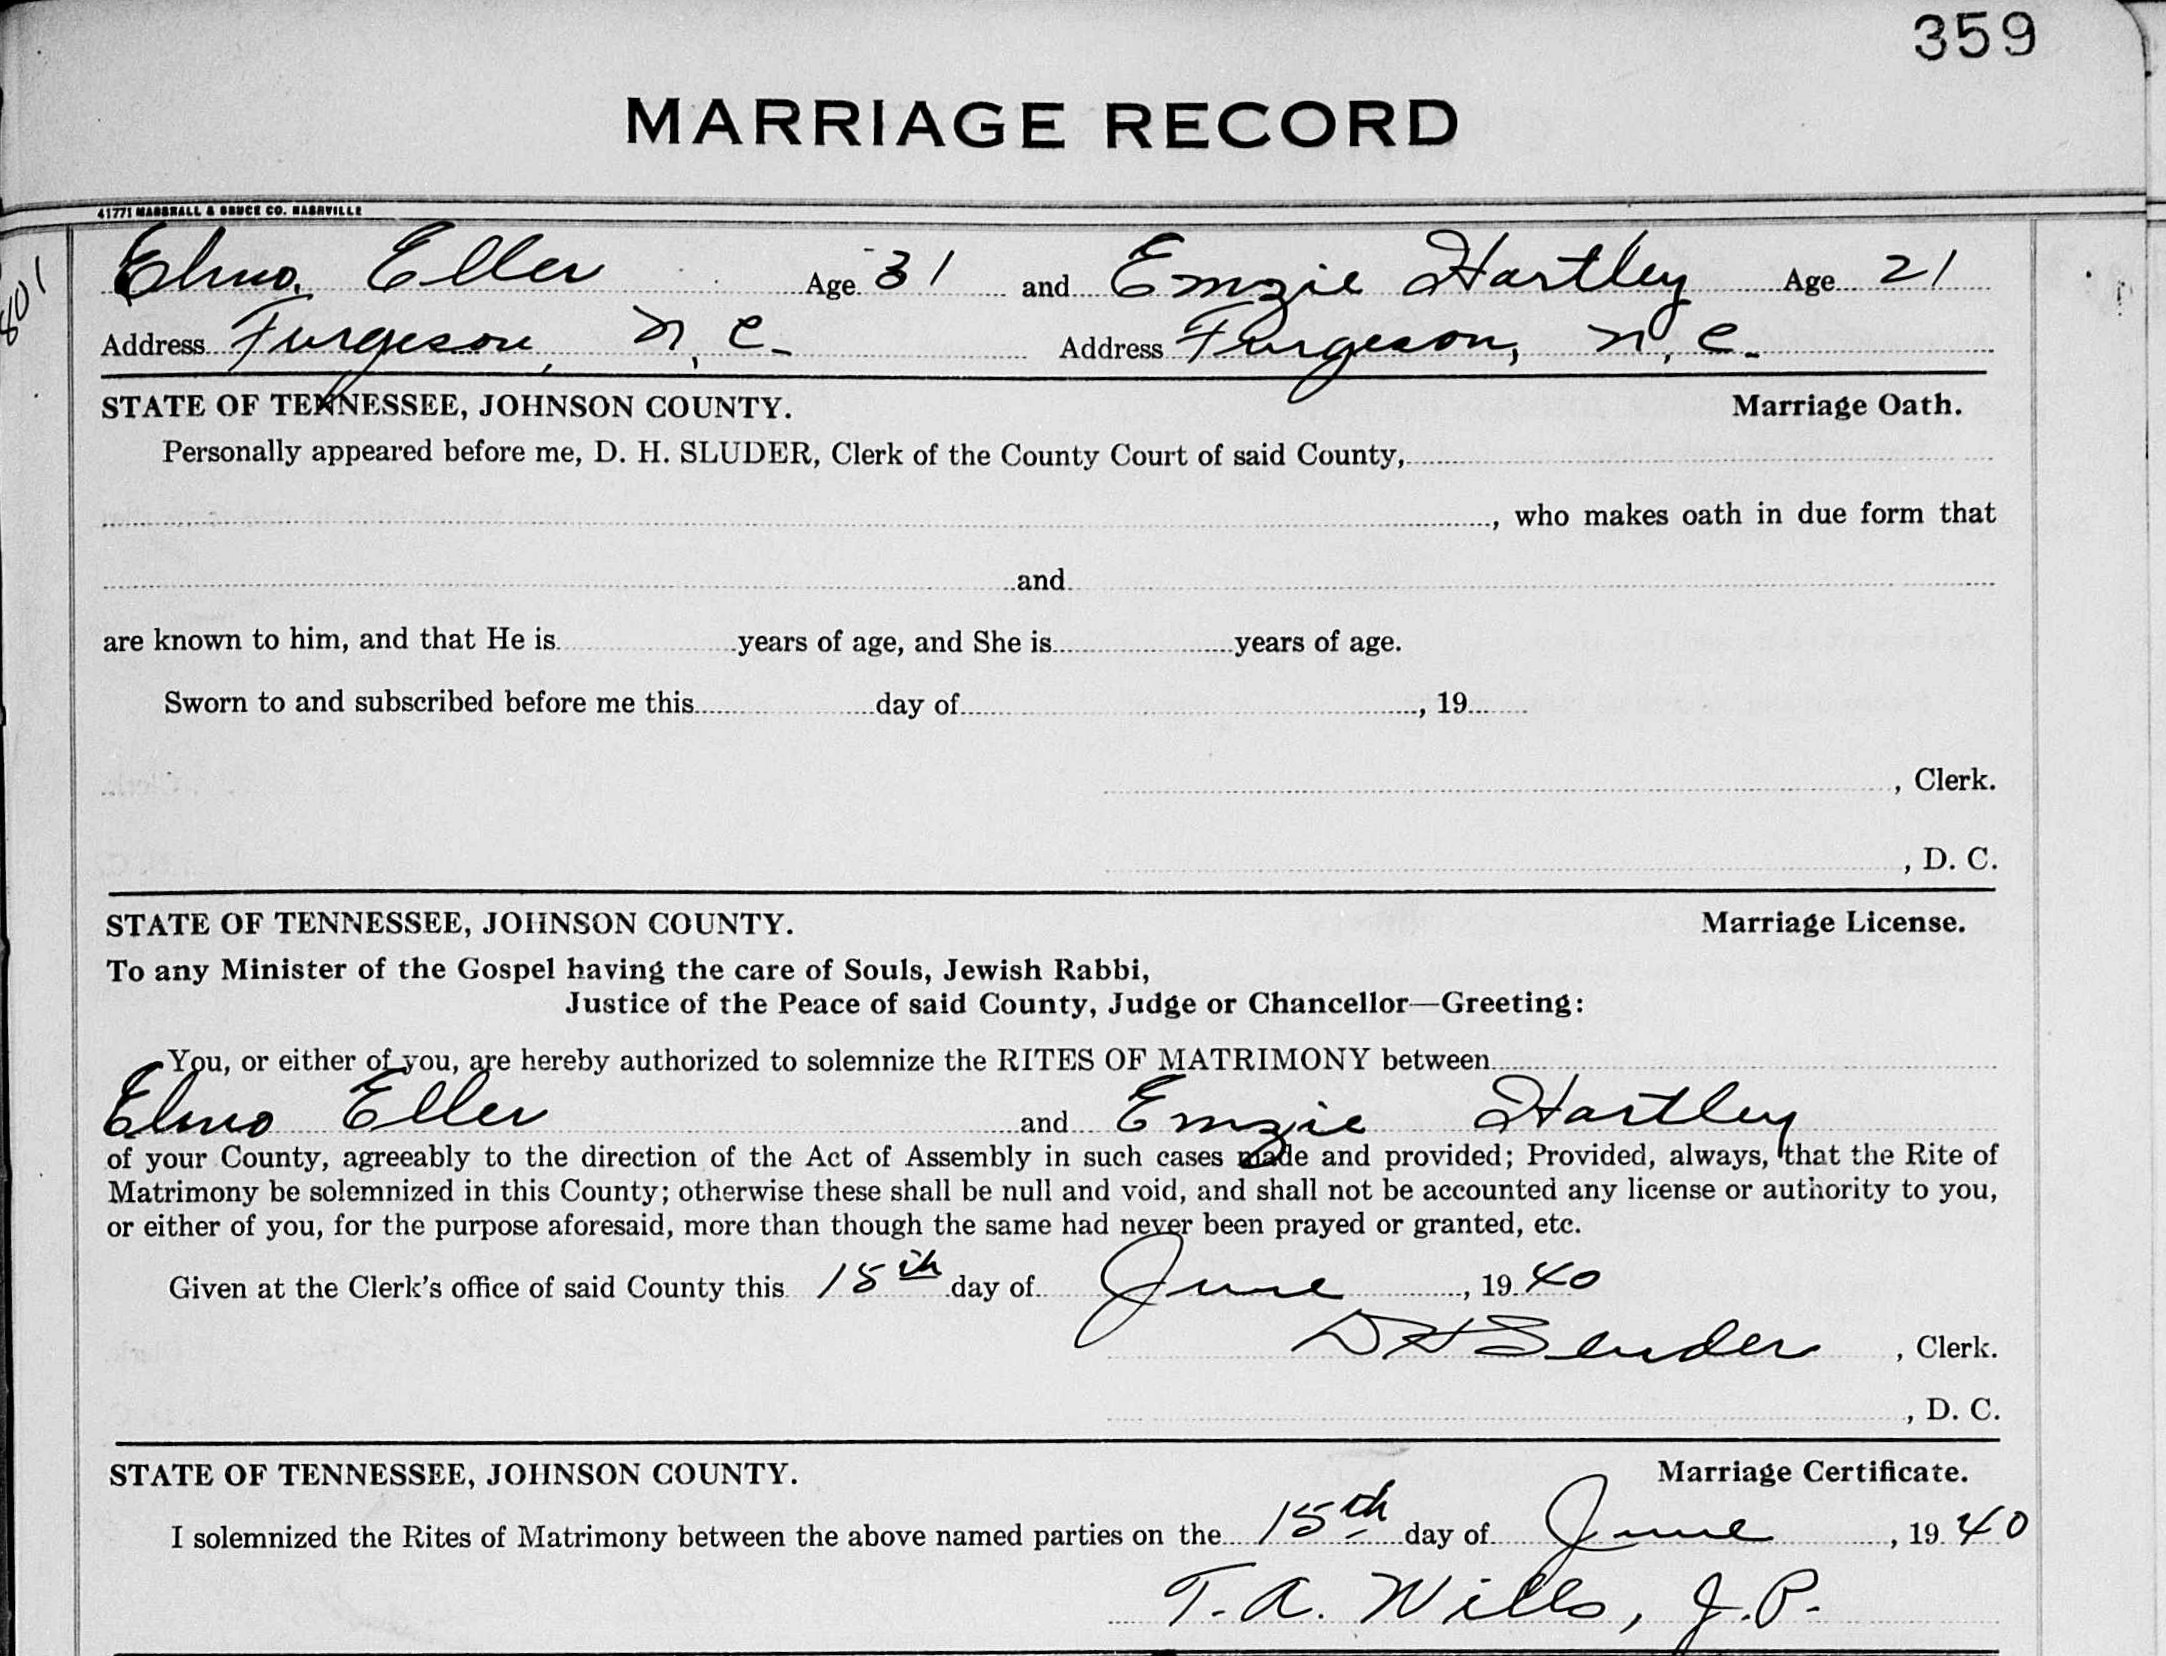 359
MARRIAGE RECORD
41771 MARSHALL & BRUCE CO. NASHVILLE
801
Elmo. Eller Age 31 and Emzie Hartley Age 21
Address Furgeson, N, C. Address Furgeson, N, C.
STATE OF TENNESSEE, JOHNSON COUNTY. Marriage Oath.
Personally appeared before me, D. H. SLUDER, Clerk of the County Court of said County,
, who makes oath in due form that
and
are known to him, and that He is years of age, and She is years of age.
Sworn to and subscribed before me this day of , 19
, Clerk.
, D. C.
STATE OF TENNESSEE, JOHNSON COUNTY. Marriage License.
To any Minister of the Gospel having the care of Souls, Jewish Rabbi,
Justice of the Peace of said County, Judge or Chancellor—Greeting:
You, or either of you, are hereby authorized to solemnize the RITES OF MATRIMONY between
Elmo Eller and Emzie Hartley
of your County, agreeably to the direction of the Act of Assembly in such cases made and provided; Provided, always, that the Rite of
Matrimony be solemnized in this County; otherwise these shall be null and void, and shall not be accounted any license or authority to you,
or either of you, for the purpose aforesaid, more than though the same had never been prayed or granted, etc.
Given at the Clerk's office of said County this 15th day of June , 19 40
D H Sluder , Clerk.
, D. C.
STATE OF TENNESSEE, JOHNSON COUNTY. Marriage Certificate.
I solemnized the Rites of Matrimony between the above named parties on the 15th day of June , 19 40
T. A. Wills, J. P.